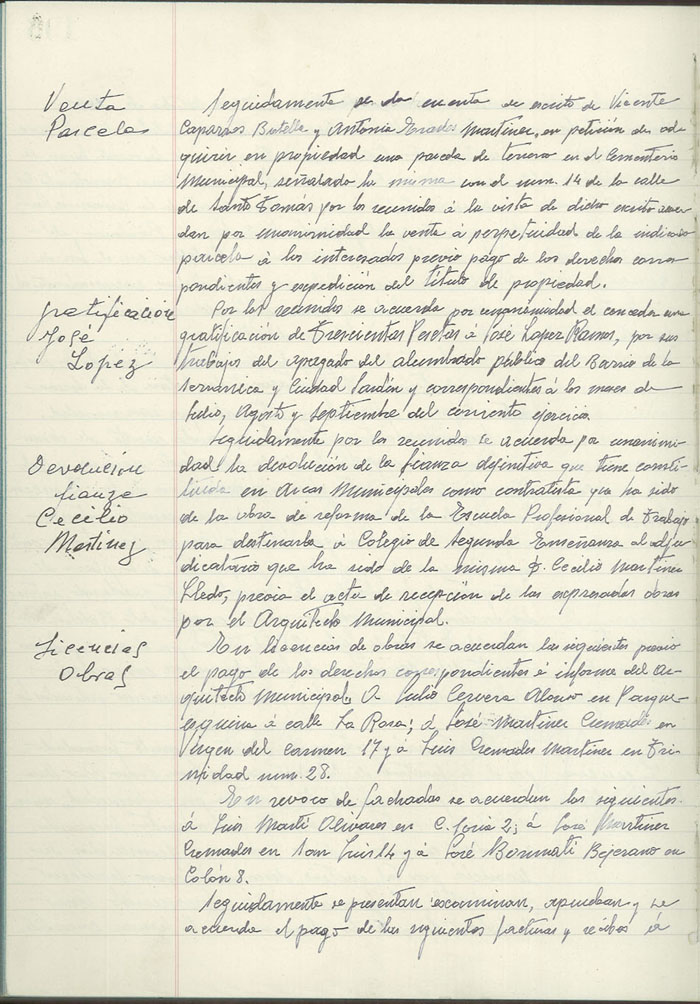 Venta
Parcelas
Seguidamente se da cuenta de escrito de Vicente
Caparros Botella y Antonia Martinez, en petición de ad-
quirir en propiedad una parcela de terreno en el Cementerio
Municipal, señalado la misma con el num. 14 de la calle
de Santo Tomás por los reunidos á la vista de dicho escrito acuer-
dan por unanimidad la venta á perpetuidad de la indicada
parcela á los interesados previo pago de los derechos corres-
pondientes y expedición del titulo de propiedad.
gratificación
José
Lopez
Por los reunidos se acuerda por unanimidad el conceder una
gratificación de Trescientas Pesetas á José Lopez Ramos, por sus
trabajos del apagado del alumbrado público del Barrio de la
y Ciudad Jardín y correspondientes á los meses de
Julio, Agosto y Septiembre del corriente ejercicio.
Devolución
fianza
Cecilio
Martinez
Seguidamente por los reunidos se acuerda por unanimi-
dad la devolución de la fianza definitiva que tiene consti-
tuida en Arcas Municipales como contratista que ha sido
de la obra de reforma de la Escuela Profesional de Trabajo
para destinarla á Colegio de Segunda Enseñanza al adju-
dicatario que ha sido de la misma D. Cecilio Martinez
Lledo, previa el acta de recepción de las expresadas obras
por el Arquitecto Municipal.
Licencias
Obras
En licencias de obras se acuerdan las siguientes previo
el pago de los derechos correspondientes é informe del Ar-
quitecto Municipal. A Julio Cervera Alonso en Parque-
esquina á calle La Rosa; á José Martinez Cremades en
Virgen del Carmen 17 y á Luis Cremades Martinez en Tri-
nidad num. 28.
En revoco de fachadas se acuerdan los siguientes
á Luis Marti Olivares en C. Soria 2; á José Martinez
Cremades en San Luis 14 y á José Bonmati Bejerano en
Colón 8.
Seguidamente se presentan examinan, aprueban y se
acuerda el pago de las siguientes facturas y recibos á